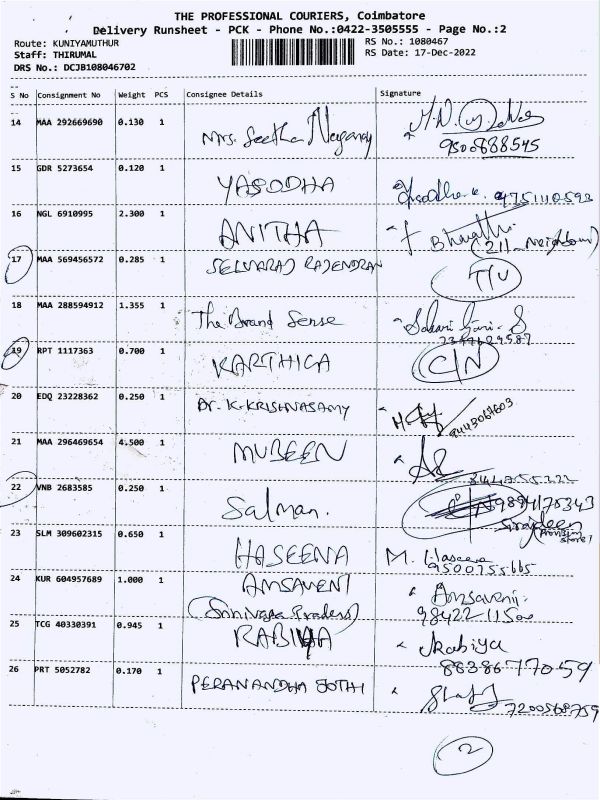 THE PROFESSIONAL COURIERS, Coimbatore
Delivery Runsheet - PCK - Phone No.:0422-3505555 - Page No.:2
Route: KUNIYAMUTHUR RS No.: 1080467
Staff: THIRUMAL RS Date: 17-Dec-2022
DRS No.: DCJB108046702
S No Consignment No Weight PCS Consignee Details Signature
14 MAA 292669690 0.130 1 Mrs. Seetha
9500688545
15 GDR 5273654 0.120 1 YASODHA 9751110593
16 NGL 6910995 2.300 1 ANITHA Bharathi
(211 Neighbour)
17 MAA 569456572 0.285 1 SELVARAJ RAJENDRAN
18 MAA 288594912 1.355 1 The Brand Sense
19 RPT 1117363 0.700 1 KARTHICA C/N
20 EDQ 23228362 0.250 1 Dr. K. KRISHNASAMY
21 MAA 296469654 4.500 1 MUBEEN
22 VNB 2683585 0.250 1 Salman. 9894178343
23 SLM 309602315 0.650 1 HASEENA M. Haseena
9500755665
24 KUR 604957689 1.000 1 AMSAVENI Amsaveni.
25 TCG 40330391 0.945 1 RABIYA Rabiya
8838677059
26 PRT 5052782 0.170 1 PERANANDHA JOTHI
7200568759
2